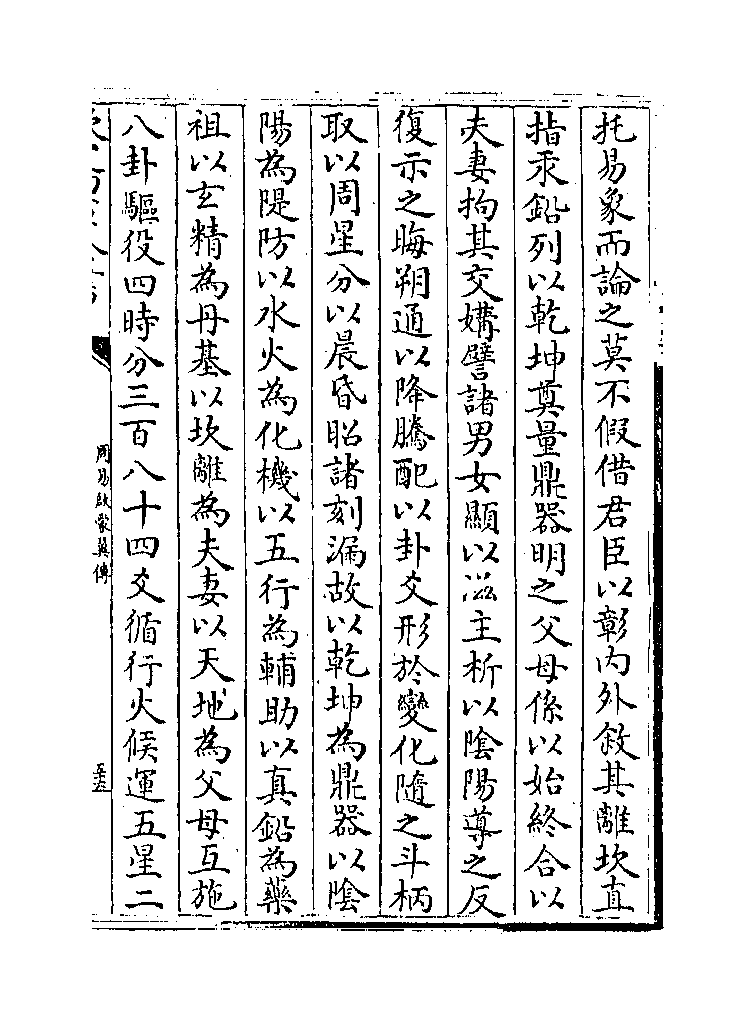 托易象而論之莫不假借君臣以彰内外敘其離坎直
指汞鉛列以乾坤奠量鼎器明之父母係以始終合以
夫妻拘其交媾譬諸男女顯以滋主析以陰陽導之反
復示之晦朔通以降騰配以卦爻形於變化隨之斗柄
取以周星分以晨昏昭諸刻漏故以乾坤為鼎器以陰
陽為隄防以水火為化機以五行為輔助以真鉛為藥
祖以玄精為丹基以坎離為夫妻以天地為父母互施
八卦驅役四時分三百八十四爻循行火候運五星二
周易啟蒙翼傳